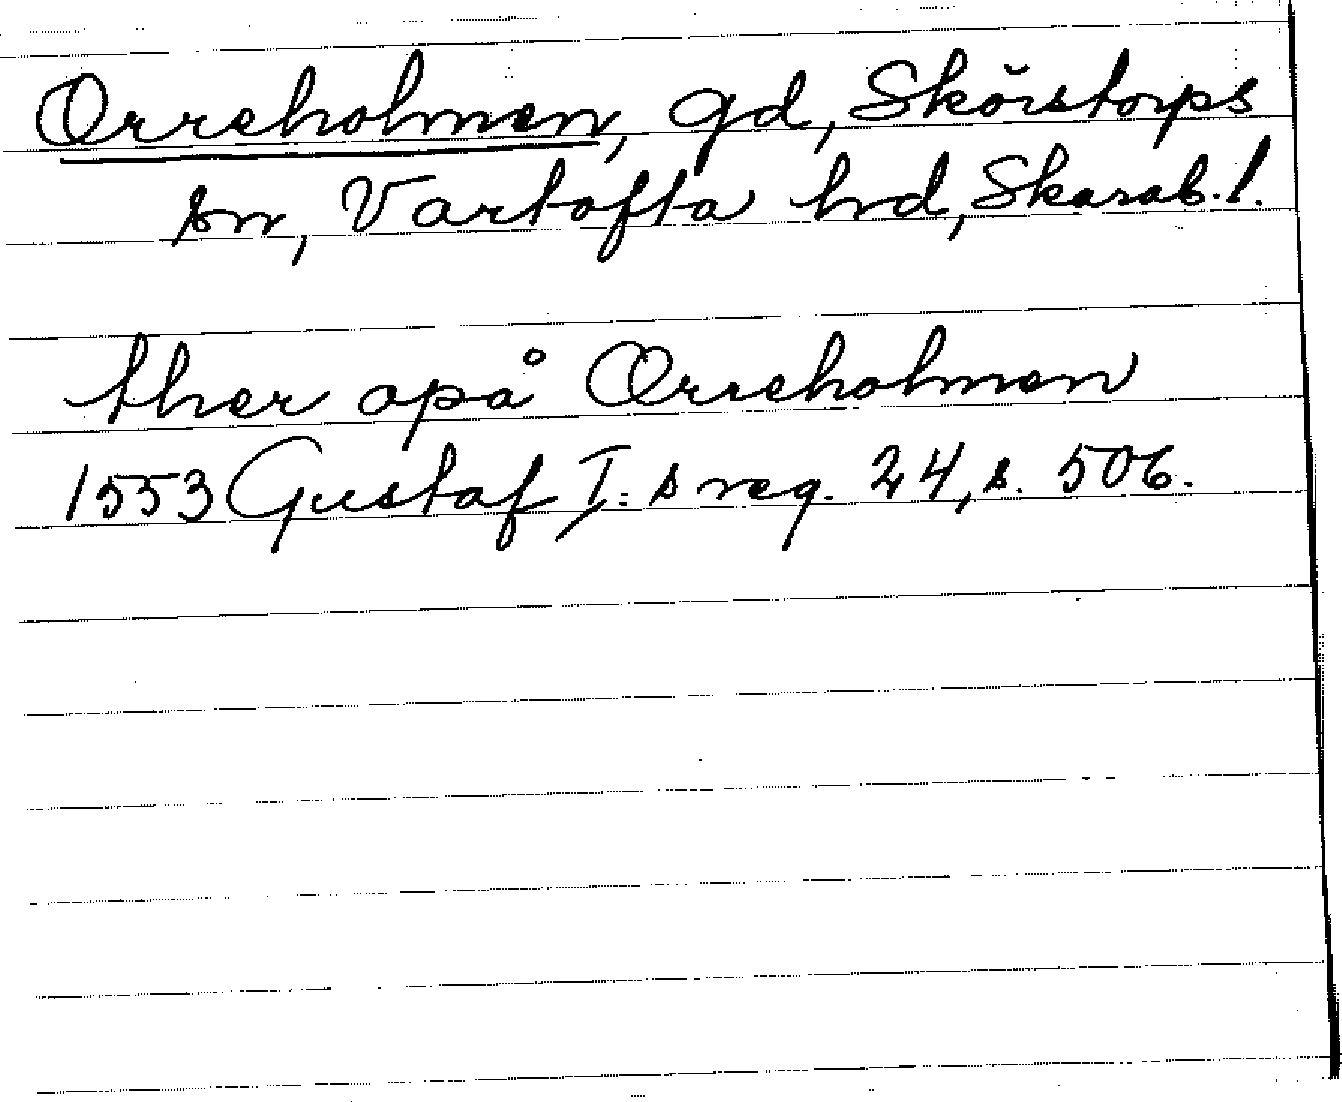 Orreholmen, gd, Skörstorps
sn, Vartofta hrd, Skarab. l.
ther opå Orreholmen
1553 Gustaf I: s reg. 24, s. 506.